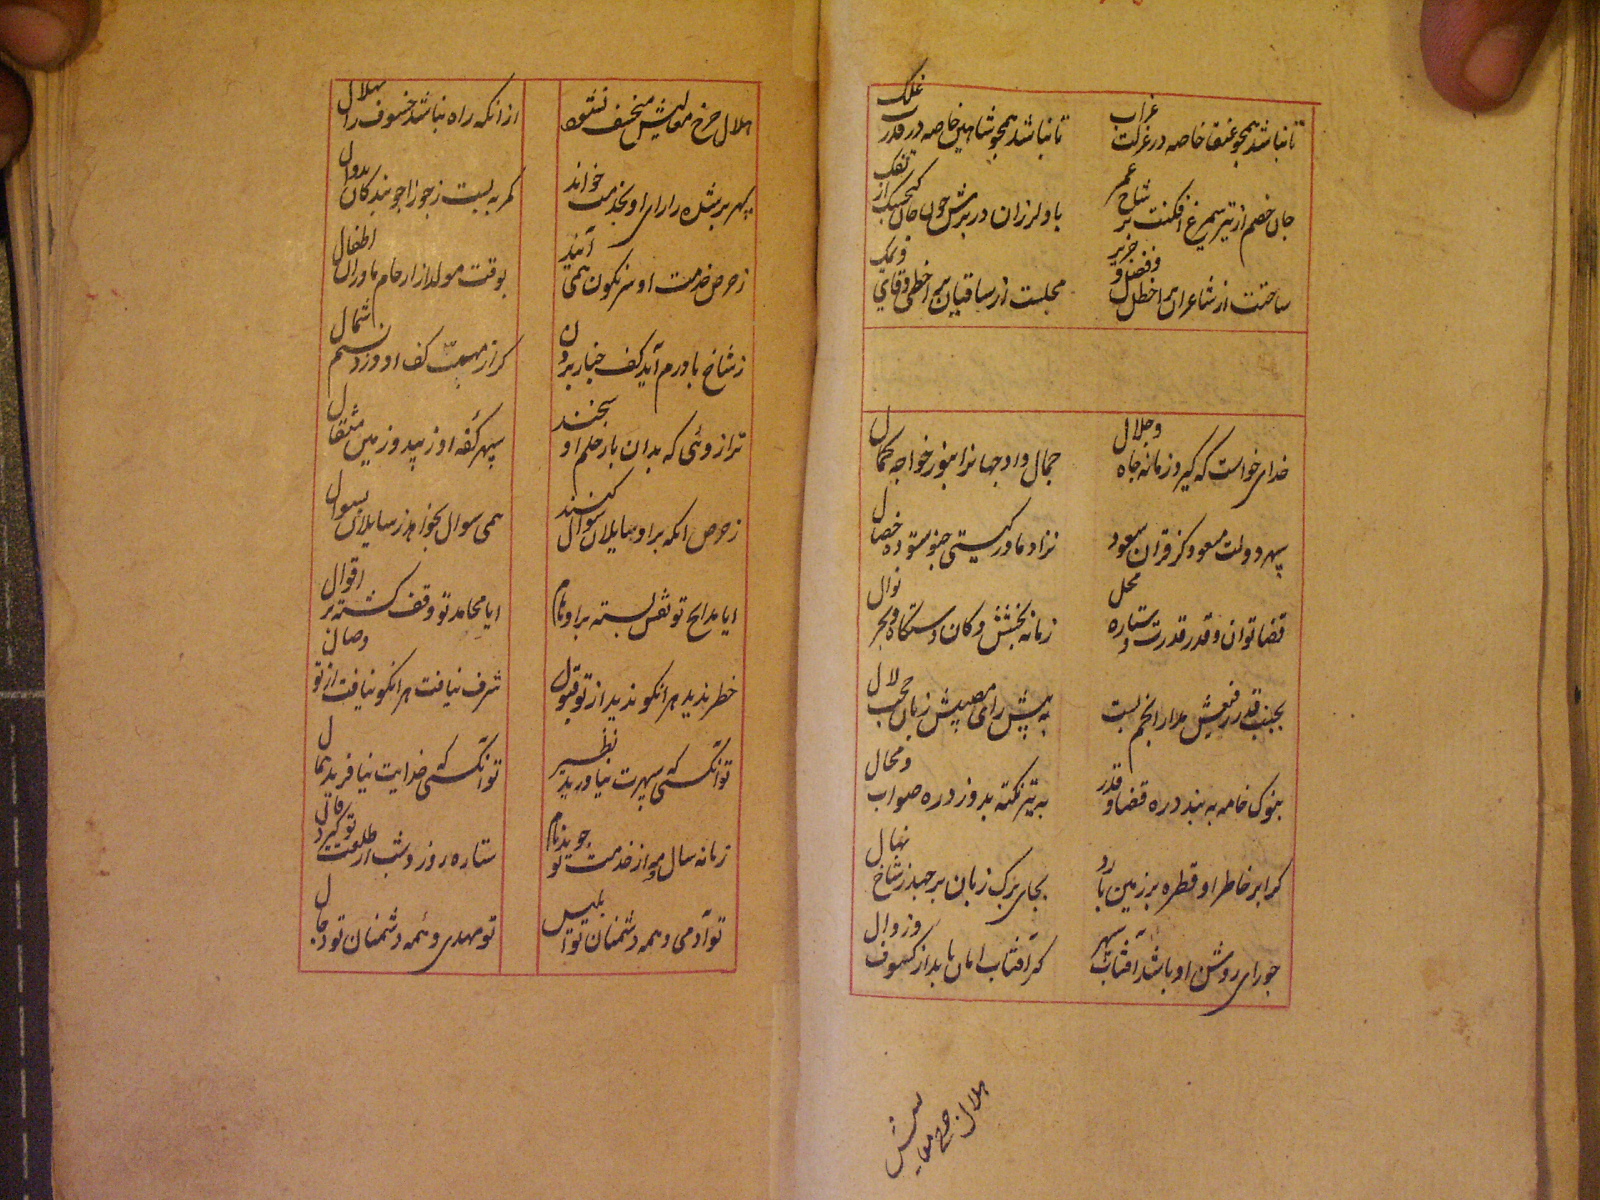 تا نباشد همچو عنقا خاصه در غربت غراب تا نباشد همچو شاهین خاصه در قدرت
جان خصم از تیر سیمرغ افکنت بر شاخ عمر باد لرزان در برش چون جان گنجشک از تفک
ساحتت از شاعران پر اخطل و فضل و جریر مجلست از ساقیان پر اخطی و قای و نمک
خدای خواست که گیرد زمانه جاه و جلال جمال داد جهانرا بنور خواجه کمال
سپهر دولت مسعود کز قران سعود نزاد مادر گیتی چنو ستوده خصال
قضا توان و قدر قدرت و ستاره محل زمانه بخشش و کان دستگاه و بحر نوال
بجنب قدر رفیعش مدار انجم پست به پیش رای مصیبش زبان حجت لال
بنوک خامه به بندد ره قضا و قدر به تیر نکته بدوزد ره صواب و محال
گر ابر خاطر او قطره بر زمین بارد بجای برگ زبان بر جهد ز شاخ نهال
چو رای روشن او باشد آفتاب سپهر گر آفتاب امان یابد از کسوف و زوال
هلال چرخ معالیش
هلال چرخ معالیش منخسف نشود از آنکه راه نباشد خسوف را بهلال
سپهر بر شده رای او بخدمت خواند کمر به بست ز جوزا چو بندگان
ز حرص خدمت او سرنگون همی آیند بوقت مولد از ارحام مادران اطفال
ز شاخ باد برآید کف چنار برون گر از مهب کف او وزد نسیم شمال
ترازوئی که بدان بار حلم او سنجند سپهر کفه او زیبد و زمین مثقال
ز حرص آنکه بر او سایلان سؤال کنند همی سوال بخواهد ز سایلان بسوال
ایا مدایح تو نقش بسته بر اوهام ایا محامد تو وقف گشته بر اقوال
خطر ندید هر آنکو ندید از تو قبول شرف نیافت هر آنکو نیافت از تو وصال
تو آنکسی که سپهرت نیاورید نظیر تو آنکسی که خدایت نیافرید همال
زمانه سال و مه از خدمت تو جوید نام ستاره روز و شب از طلعت تو گیرد
تو آدمی و همه دشمنان تو ابلیس تو مهدی و همه دشمنان تو دجال